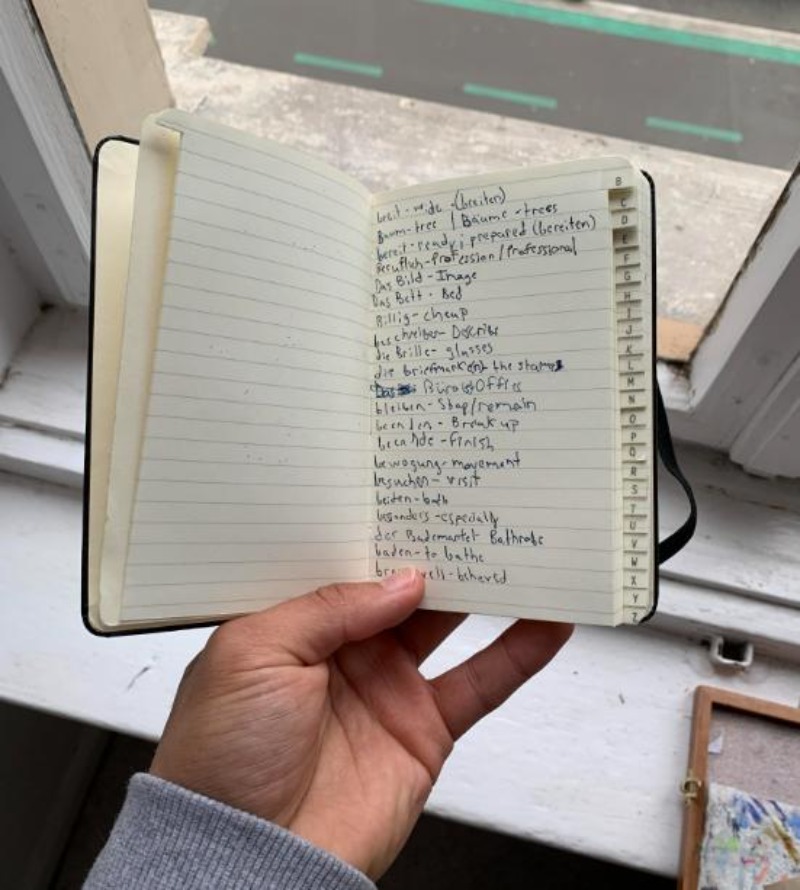 breit - wide - (breiten)
Baum - tree | Bäume - trees
bereit - ready; prepared (bereiten)
Beruflich - Profession / Professional
Das Bild - Image
Das Bett - Bed
Billig - cheap
beschreiben - Describe
die Brille - glasses
die briefmarke(n) - the stamps
Büro Office
bleiben - Stay/remain
beenden - Break up
beende - finish
bewegung - movement
besuchen - visit
beiden - both
besonders - especially
der Bademantel Bathrobe
baden - to bathe
well - behaved
B
C
D
E
F
G
H
I
J
K
L
M
N
O
P
Q
R
S
T
U
V
W
X
Y
Z